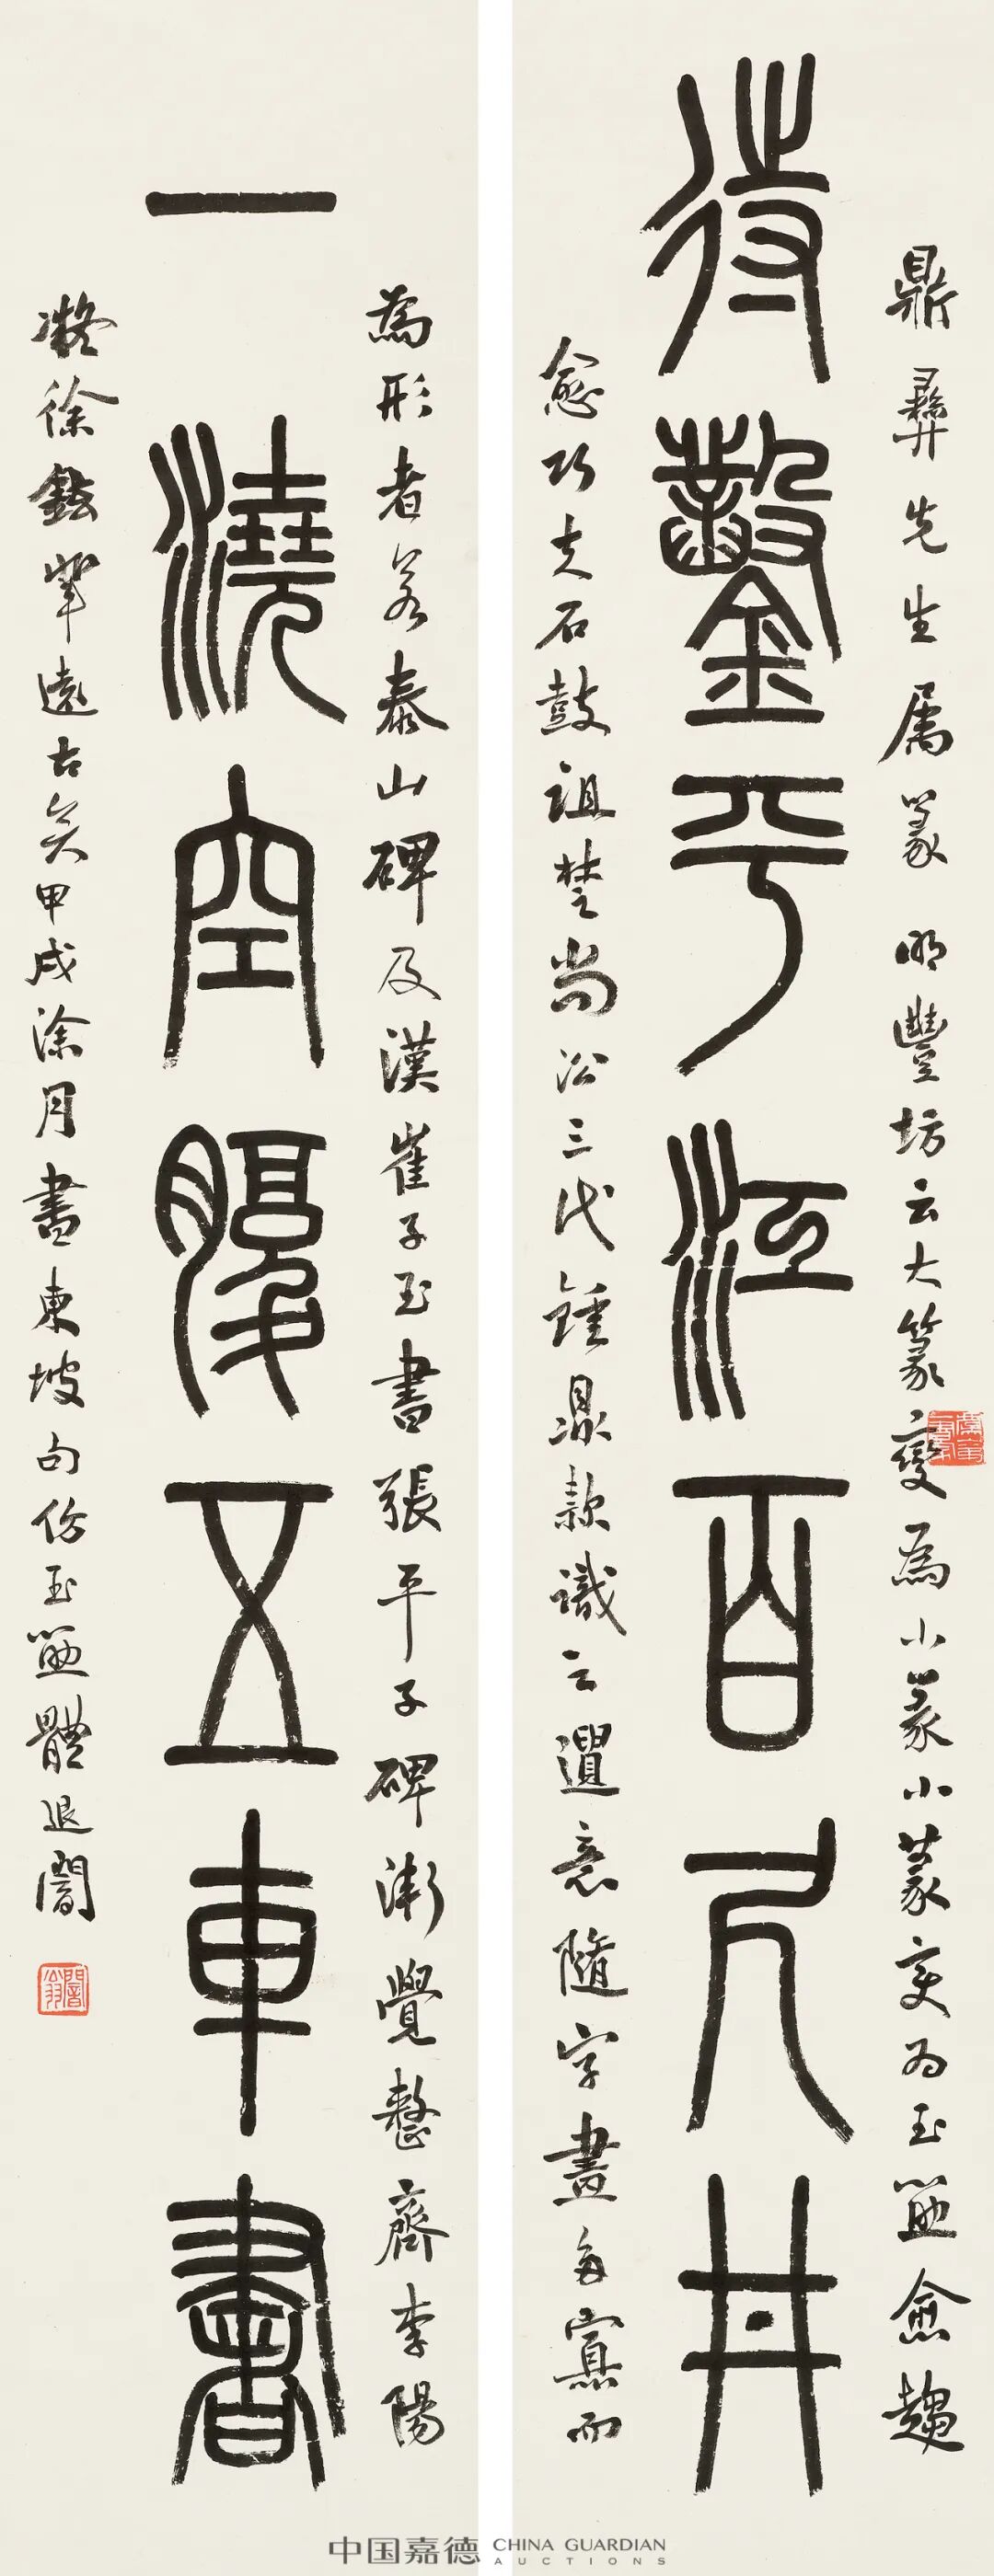 鼎彝先生属篆 明豐坊云大篆變為小篆小篆变为玉筯愈趨
待鑿平江百尺井
愈巧夫石鼓詛楚尚沿三代鍾鼎款識之遺意隨字畫多寡而
為形者若泰山碑及漢崔子玉書張平子碑漸覺整齊李陽
一澆空腹五車書
凝徐鉉輩遠古矣甲戌涂月書東坡句仿玉筯體退闇
闇翁
中国嘉德 CHINA GUARDIAN AUCTIONS